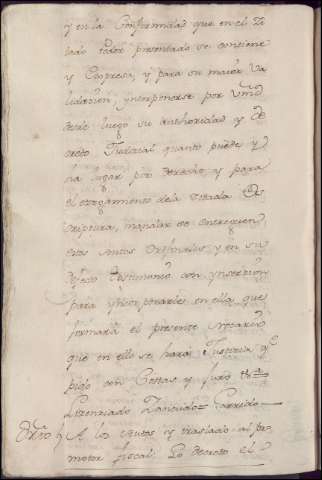 y en la Conformidad que en el Ci
tado Poder presentado se contiene
y Expresa, y para su maior va
lidacion, ynterponerse por Vmd
desde luego su authoridad y de
creto Judicial quanto puede y
ha lugar por derecho, y para
el otorgamiento dela citada Es
criptura, mandar se entreguen
estos Autos Originales, y en su
defecto testimonio con ynsercion
para yncorporarlos en ella que
formará el presente Notario
que en ello se hará Justicia qe
pido con Costas y Juro &a
Licenciado Zancudo = Garrido
A los Autos y traslado al pro
motor fiscal: Lo decretó el